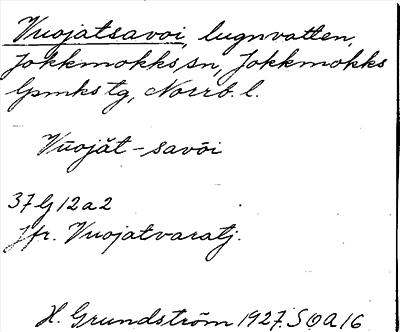 Vuojatsavoi, lugnvatten,
Jokkmokks sn, Jokkmokks
lpmks tg, Norrb. l.
Vuojăt-savōi
37 G 12 a 2
Jfr. Vuojatvaratj.
H. Grundström 1927. SOA 16